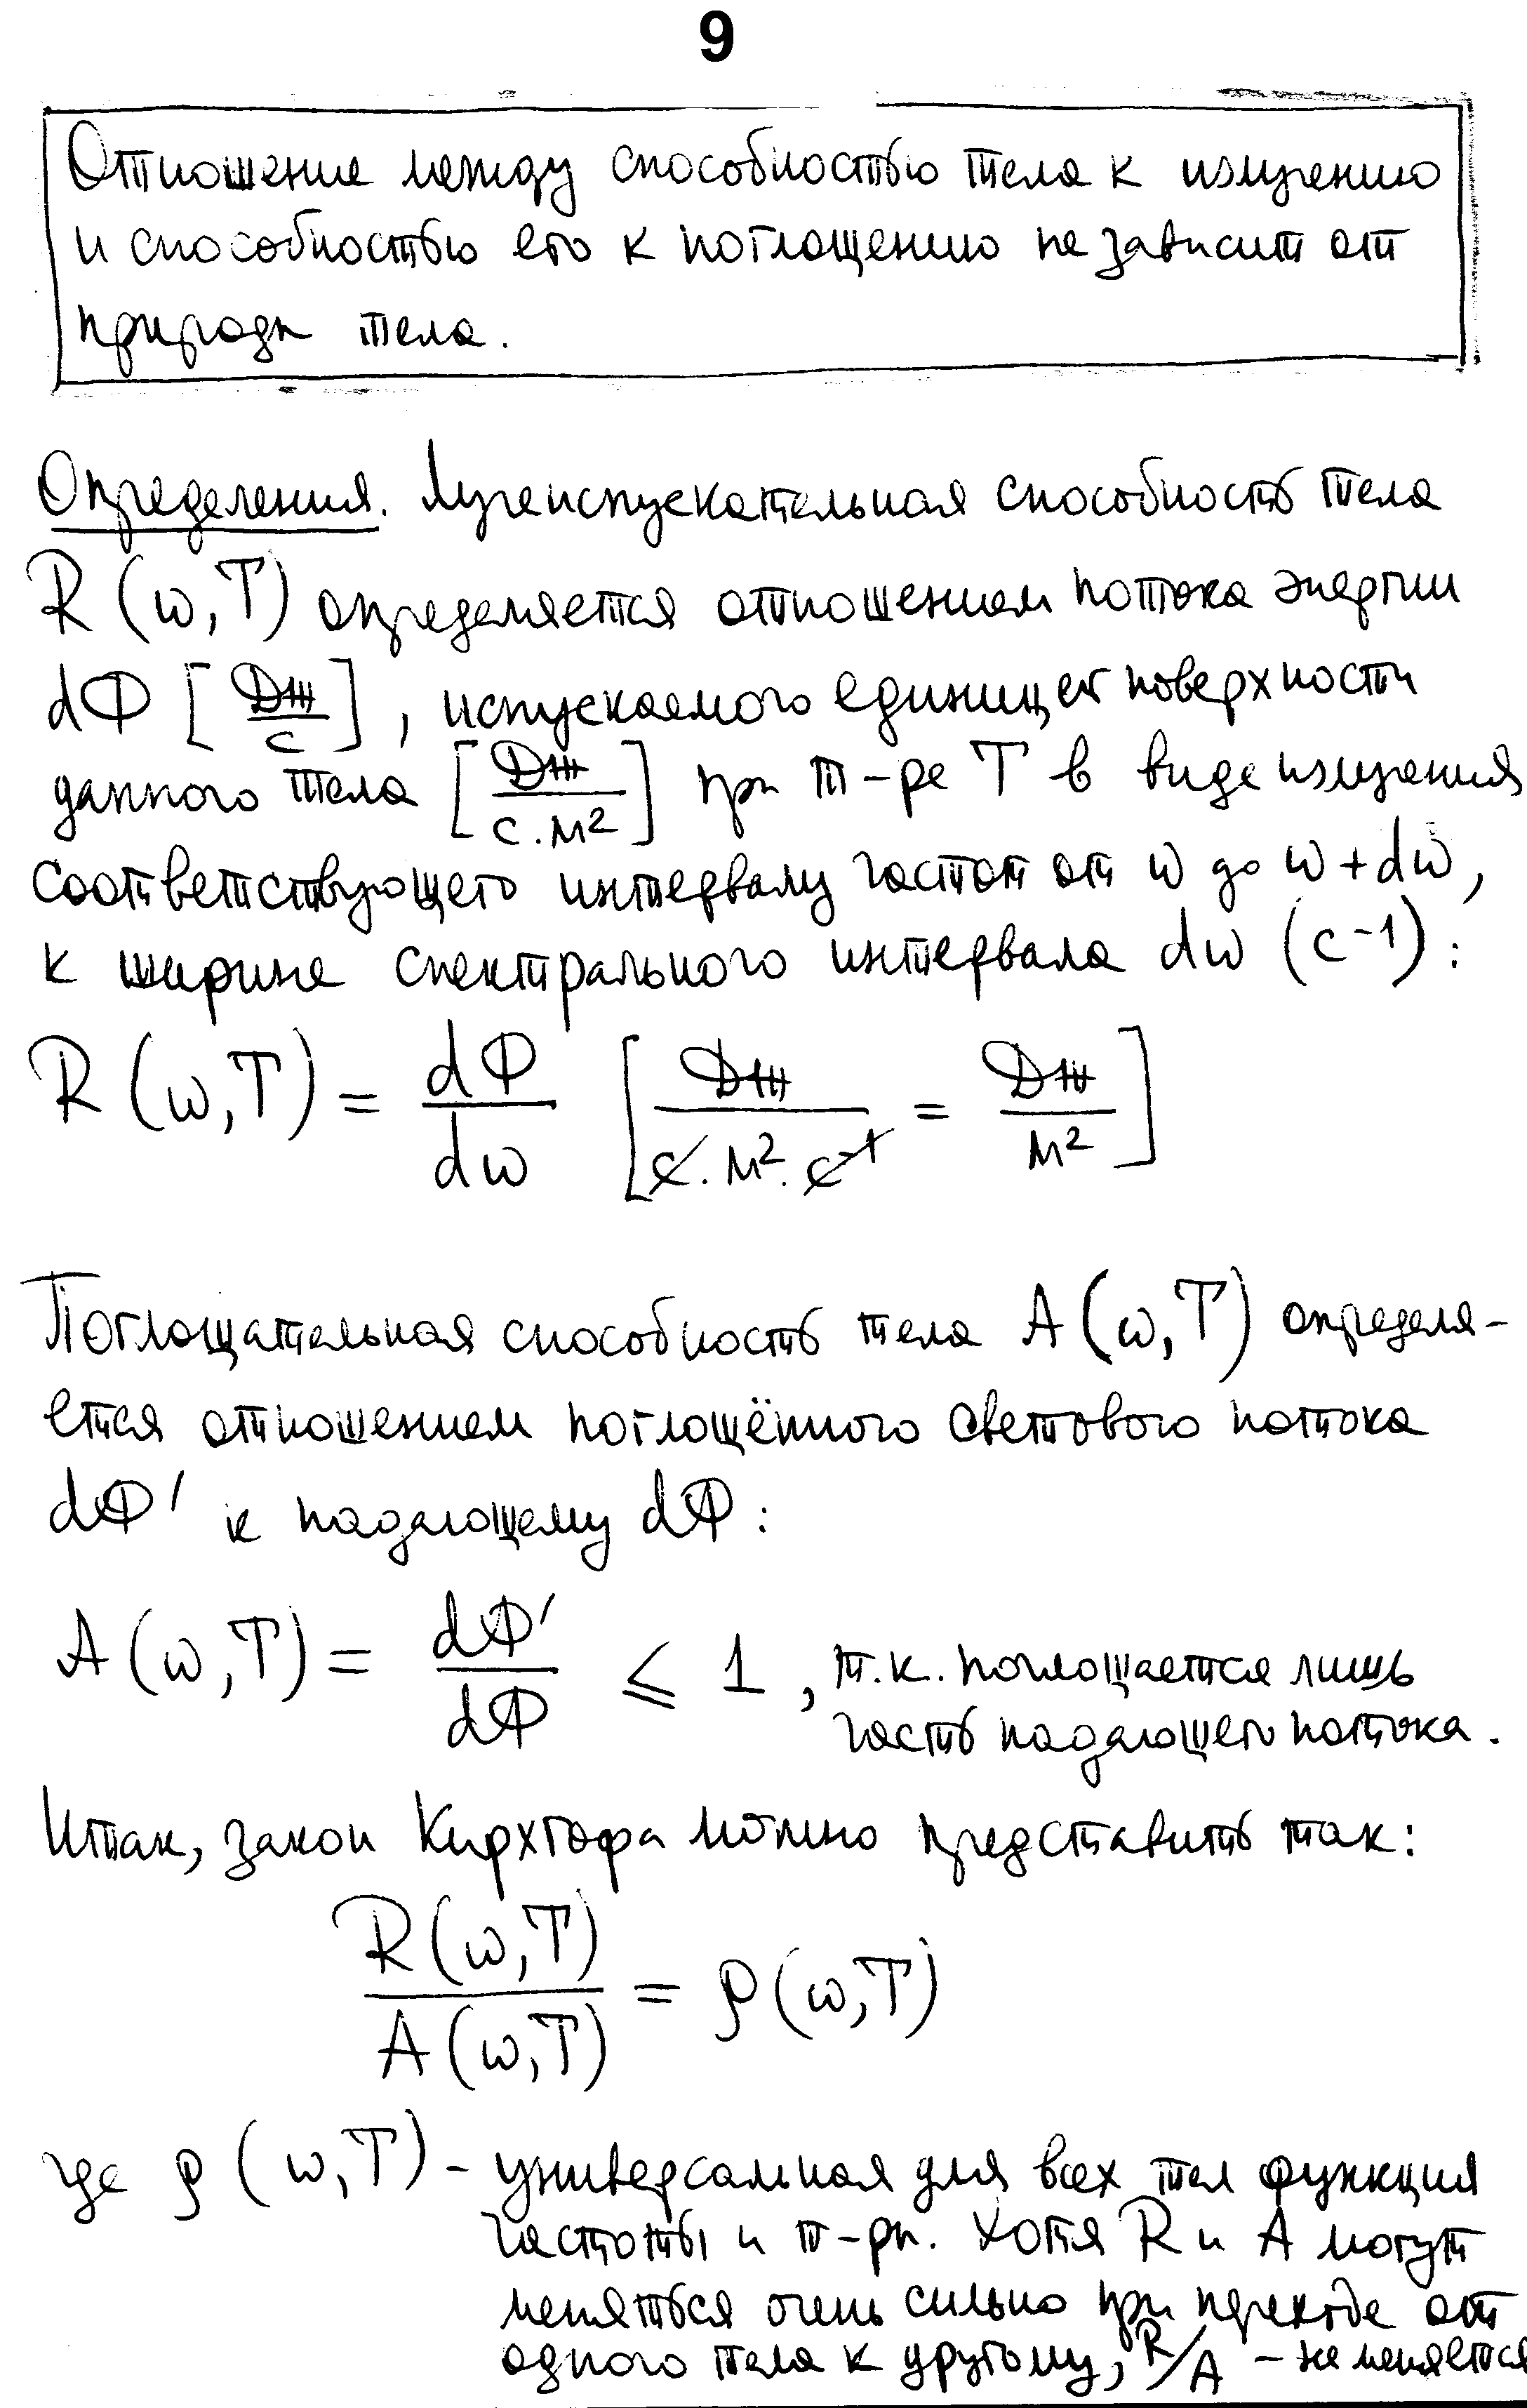 9
Отношение между способностью тела к излучению
и способностью его к поглощению не зависит от
природы тела.
Определения. Лучеиспускательная способность тела
R (ω,T) определяется отношением потока энергии
dФ [Дж/с], испускаемого единицей поверхности
данного тела [Дж/с·м²] при т-ре T в виде излучения
соответствующего интервалу частот от ω до ω+dω,
к ширине спектрального интервала dω (с⁻¹):
R (ω,T) = dФ/dω [Дж/с·м²·с⁻¹ = Дж/м²]
Поглощательная способность тела A (ω,T) определя-
ется отношением поглощённого светового потока
dФ' к падающему dФ:
A (ω,T) = dФ'/dФ ⩽ 1, т.к. поглощается лишь
часть падающего потока.
Итак, закон Кирхгофа можно представить так:
R(ω,T)/A(ω,T) = ρ(ω,T)
где ρ (ω,T) - универсальная для всех тел функция
частоты и т-ры. Хотя R и A могут
меняться очень сильно при переходе от
одного тела к другому, R/A - не меняется